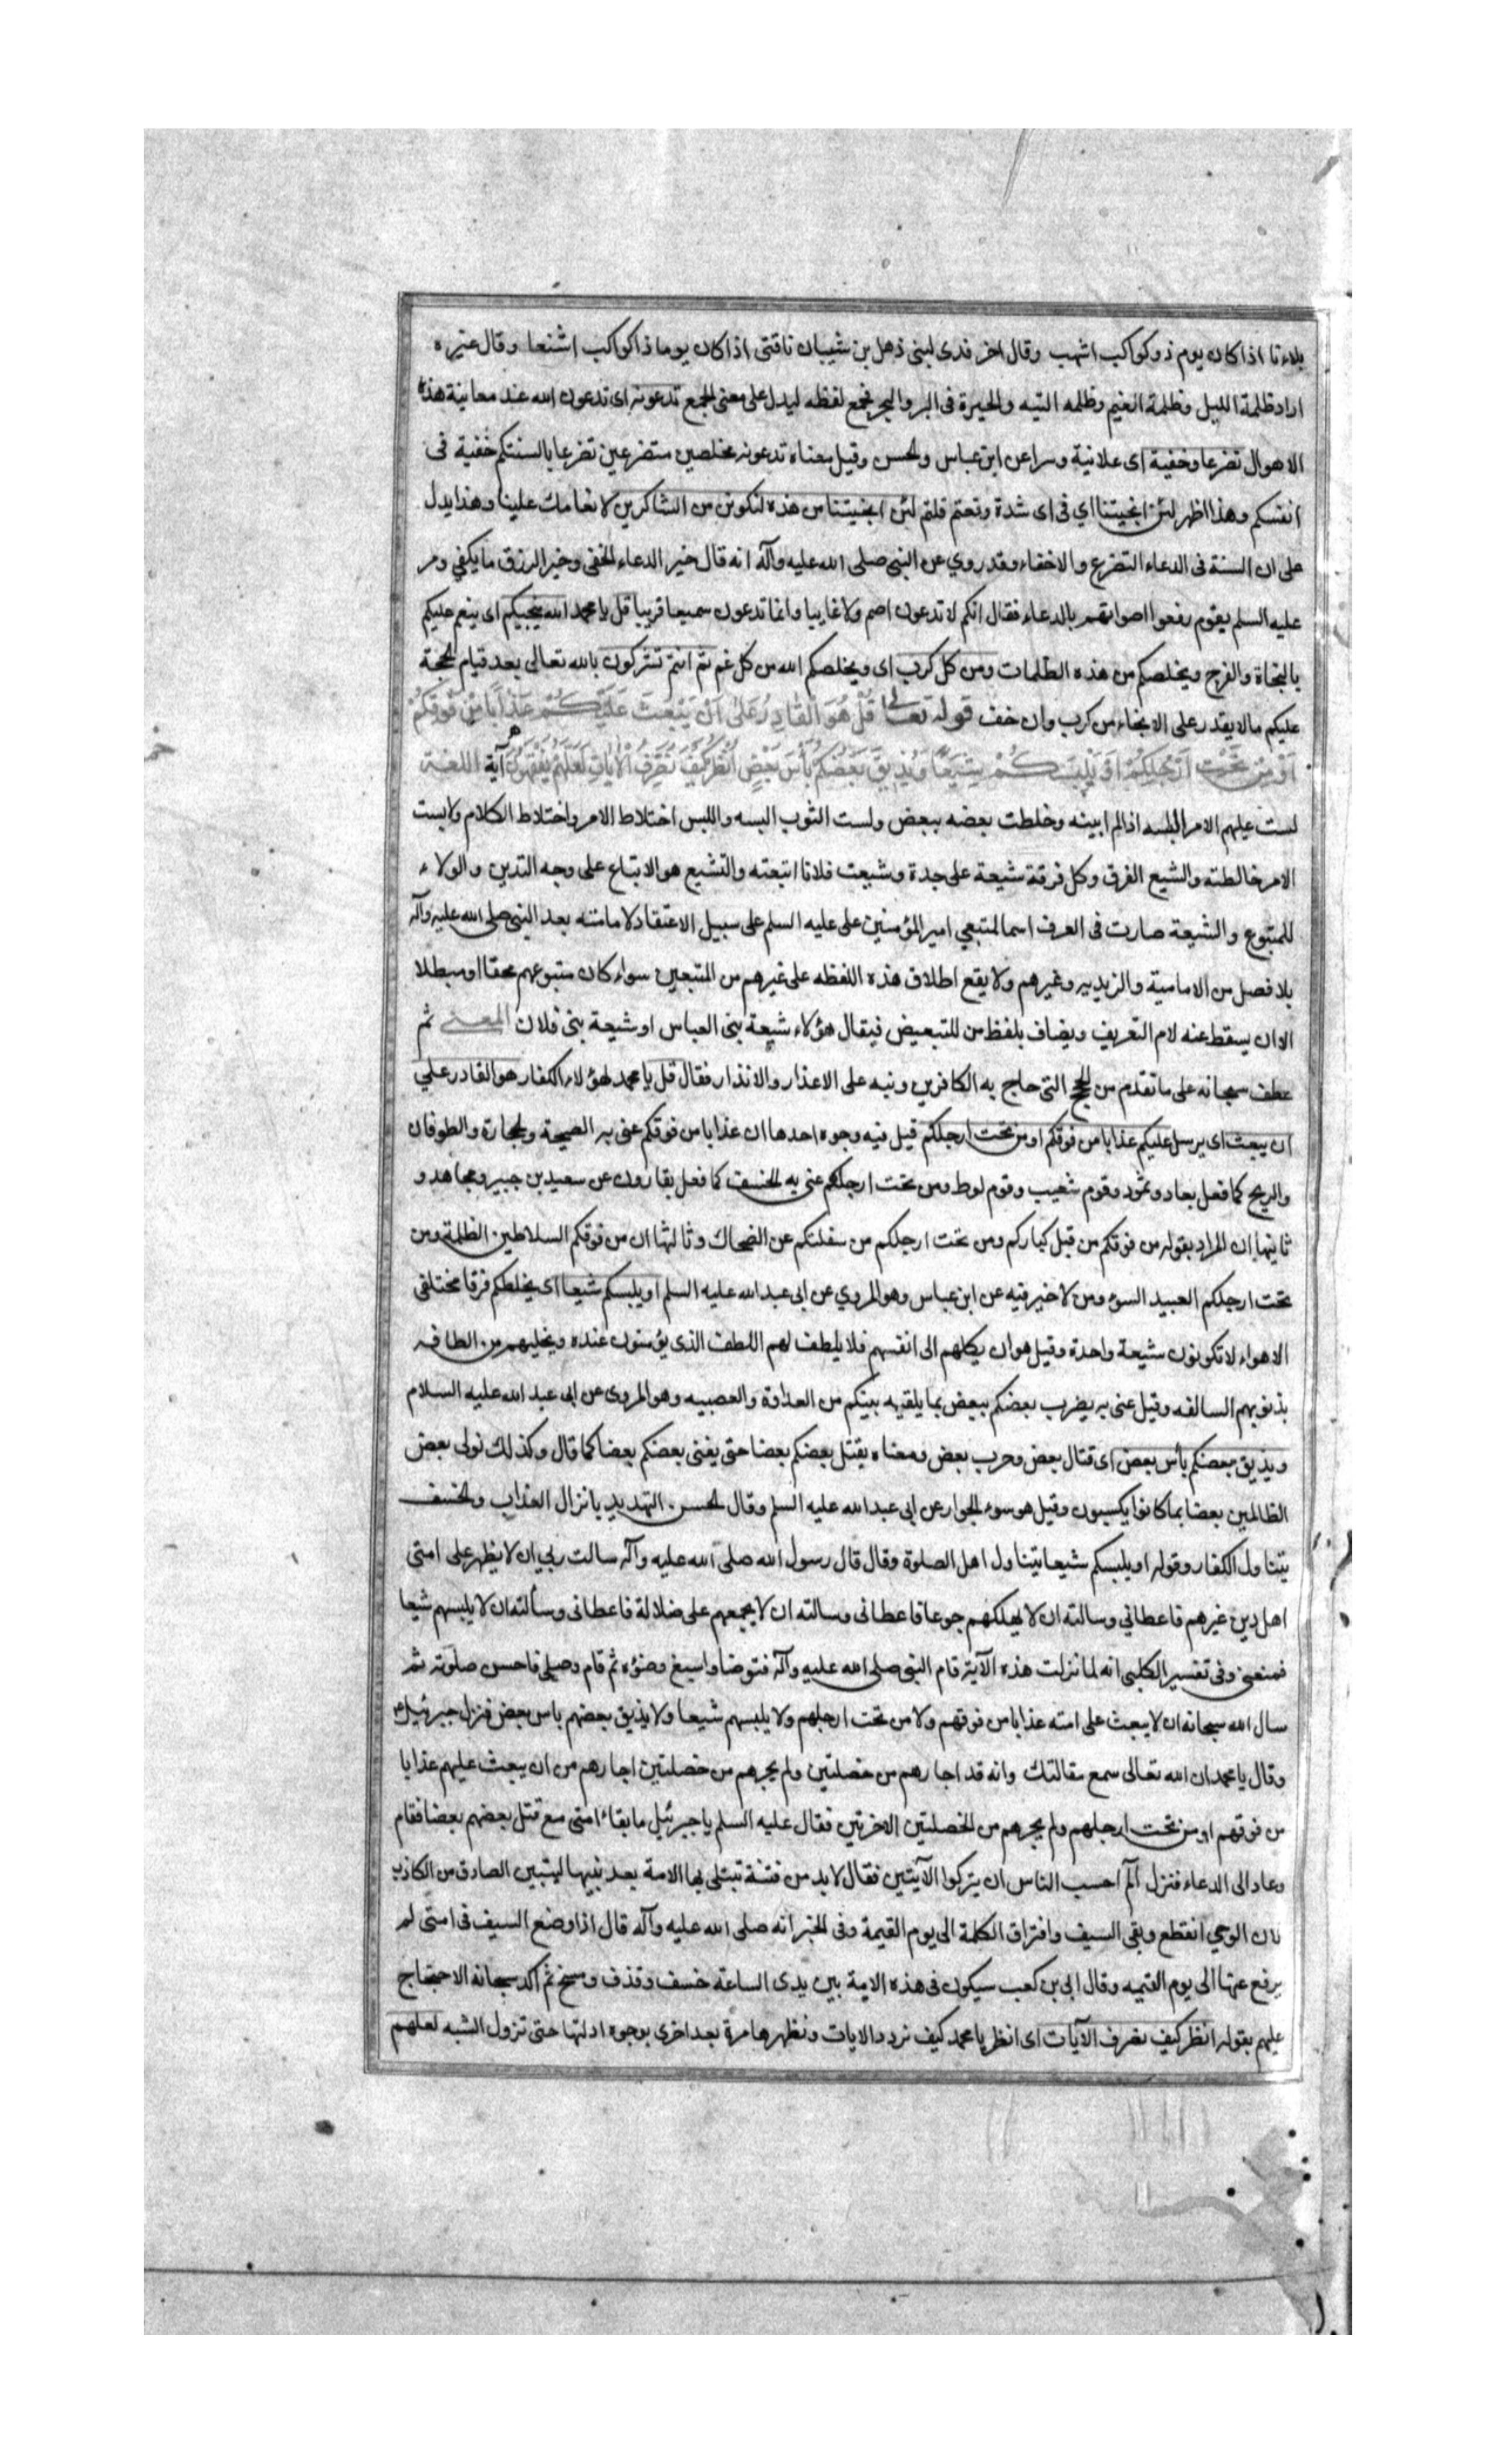 بلاءنا اذا كان يوم ذو كواكب اشهب وقال اخر فدى لبنى ذهل بن شيبان ناقتى اذا كان يوما ذا كواكب اشنعا وقال غيره
اراد ظلمة الليل وظلمة الغيم وظلمه التيه والحيرة فى البر والبحر فجمع لفظه ليدل على معنى الجمع تدعونه اى تدعون الله عند معاينة هذه
الاهوال تضرعا وخفية اى علانية وسرا عن ابن عباس والحسن وقيل معناه تدعونه مخلصين متضرعين تضرعا بالسنتكم خفية فى
انفسكم وهذا اظهر لئن انجيتنا اي فى اى شدة وقعتم قلتم لئن انجيتنا من هذه لنكونن من الشاكرين لانعامك علينا وهذا يدل
على ان السنة فى الدعاء التضرع والاخفاء وقد روي عن النبى صلى الله عليه وآله انه قال خير الدعاء الخفى وخير الرزق ما يكفي ومر
عليه السلم بقوم رفعوا اصواتهم بالدعاء فقال انكم لا تدعون اصم ولا غايبا وانما تدعون سميعا قريبا قل يا محمد الله ينجيكم اى ينعم عليكم
بالنجاة والفرج ويخلصكم من هذه الظلمات ومن كل كرب اى ويخلصكم الله من كل غم ثم انتم تشركون بالله تعالى بعد قيام الحجة
عليكم مالا يقدر على الانجاء من كرب وان خف قوله تعالى قُلْ هُوَ الْقَادِرُ عَلَى اَنْ يَبْعَثَ عَلَيْكُمْ عَذَابًا مِنْ فَوْقِكُمْ
اَوْ مِنْ تَحْتِ اَرْجُلِكُمْ اَوْ يَلْبِسَكُمْ شِيَعًا وَيُذِيقَ بَعْضَكُمْ بَأْسَ بَعْضٍ اُنْظُرْ كَيْفَ نُصَرِّفُ الْاٰيَاتِ لَعَلَّهُمْ يَفْقَهُونَ آية اللغة
لبست عليهم الامر البسه اذا لم ابينه وخلطت بعضه ببعض ولبست الثوب البسه واللبس اختلاط الامر واختلاط الكلام ولابست
الامر خالطته والشيع الفرق وكل فرقة شيعة على حدة وشيعت فلانا اتبعته والتشيع هو الاتباع على وجه التدين والولاء
للمتبوع والشيعة صارت فى العرف اسما لمتبعي امير المؤمنين على عليه السلم على سبيل الاعتقاد لامامته بعد النبى صلى الله عليه وآله
بلا فصل من الامامية والزيديه وغيرهم ولا يقع اطلاق هذه اللفظه على غيرهم من المتبعين سواء كان متبوعهم محقا او مبطلا
الا ان يسقط عنه لام التعريف ويضاف بلفظ من للتبعيض فيقال هؤلاء شيعة بنى العباس او شيعة بنى فلان المعنى ثم
عطف سبحانه على ما تقدم من الحجج التى حاج به الكافرين ونبه على الاعذار والانذار فقال قل يا محمد لهؤلاء الكفار هو القادر على
ان يبعث اى يرسل عليكم عذابا من فوقكم او من تحت ارجلكم قيل فيه وجوه احدها ان عذابا من فوقكم عنى به الصيحة والحجارة والطوفان
والريح كما فعل بعاد وثمود وقوم شعيب وقوم لوط ومن تحت ارجلكم عنى به الخسف كما فعل بقارون عن سعيد بن جبير ومجاهد و
ثانيها ان المراد بقوله من فوقكم من قبل كباركم ومن تحت ارجلكم من سفلتكم عن الضحاك وثالثها ان من فوقكم السلاطين الظلمة ومن
تحت ارجلكم العبيد السوء ومن لا خير فيه عن ابن عباس وهو المروي عن ابى عبد الله عليه السلم او يلبسكم شيعا اى يخلطكم فرقا مختلفى
الاهواء لا تكونون شيعة واحدة وقيل هو ان يكلهم الى انفسهم فلا يلطف لهم اللطف الذى يؤمنون عنده ويخليهم من الطافه
بذنوبهم السالفه وقيل عنى به يضرب بعضكم ببعض بما يلقيه بينكم من العداوة والعصبيه وهو المروى عن ابى عبد الله عليه السلام
ويذيق بعضكم بأس بعض اى قتال بعض وحرب بعض ومعناه يقتل بعضكم بعضا حتى يفنى بعضكم بعضا كما قال وكذلك نولى بعض
الظالمين بعضا بما كانوا يكسبون وقيل هو سوء الجوار عن ابى عبد الله عليه السلم وقال الحسن التهديد بانزال العذاب والخسف
يتناول الكفار وقوله او يلبسكم شيعا يتناول اهل الصلوة وقال قال رسول الله صلى الله عليه وآله سالت ربي ان لا يظهر على امتى
اهل دين غيرهم فاعطاني وسالته ان لا يهلكهم جوعا فاعطانى وسالته ان لا يجمعهم على ضلالة فاعطانى وسألته ان لا يلبسهم شيعا
فمنعنى وفى تفسير الكلبى انه لما نزلت هذه الآية قام النبى صلى الله عليه وآله فتوضا واسبغ وضؤه ثم قام وصلى فاحسن صلوته ثم
سال الله سبحانه ان لا يبعث على امته عذابا من فوقهم ولا من تحت ارجلهم ولا يلبسهم شيعا ولا يذيق بعضهم باس بعض فنزل جبرئيل ع
وقال يا محمد ان الله تعالى سمع مقالتك وانه قد اجارهم من خصلتين ولم يجرهم من خصلتين اجارهم من ان يبعث عليهم عذابا
من فوقهم او من تحت ارجلهم ولم يجرهم من الخصلتين الاخرتين فقال عليه السلم يا جبرئيل ما بقاء امتى مع قتل بعضهم بعضا فقام
وعاد الى الدعاء فنزل الم احسب الناس ان يتركوا الآيتين فقال لا بد من فتنة تبتلى بها الامة بعد نبيها ليتبين الصادق من الكاذب
لان الوحي انقطع وبقى السيف وافتراق الكلمة الى يوم القيمة وفى الخبر انه صلى الله عليه وآله قال اذا وضع السيف فى امتى لم
يرفع عنها الى يوم القيمه وقال ابى بن كعب سيكون فى هذه الامة بين يدى الساعة خسف وقذف ومسخ ثم اكد سبحانه الاحتجاج
عليهم بقوله انظر كيف نصرف الآيات اى انظر يا محمد كيف نردد الايات ونظهرها مرة بعد اخرى بوجوه ادلتها حتى تزول الشبه لعلهم